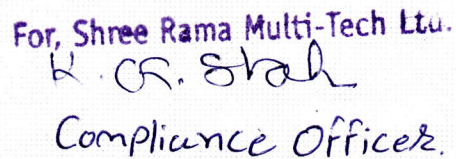 For, Shree Rama Multi-Tech Ltd.
K. G. Shah
Compliance Officer.